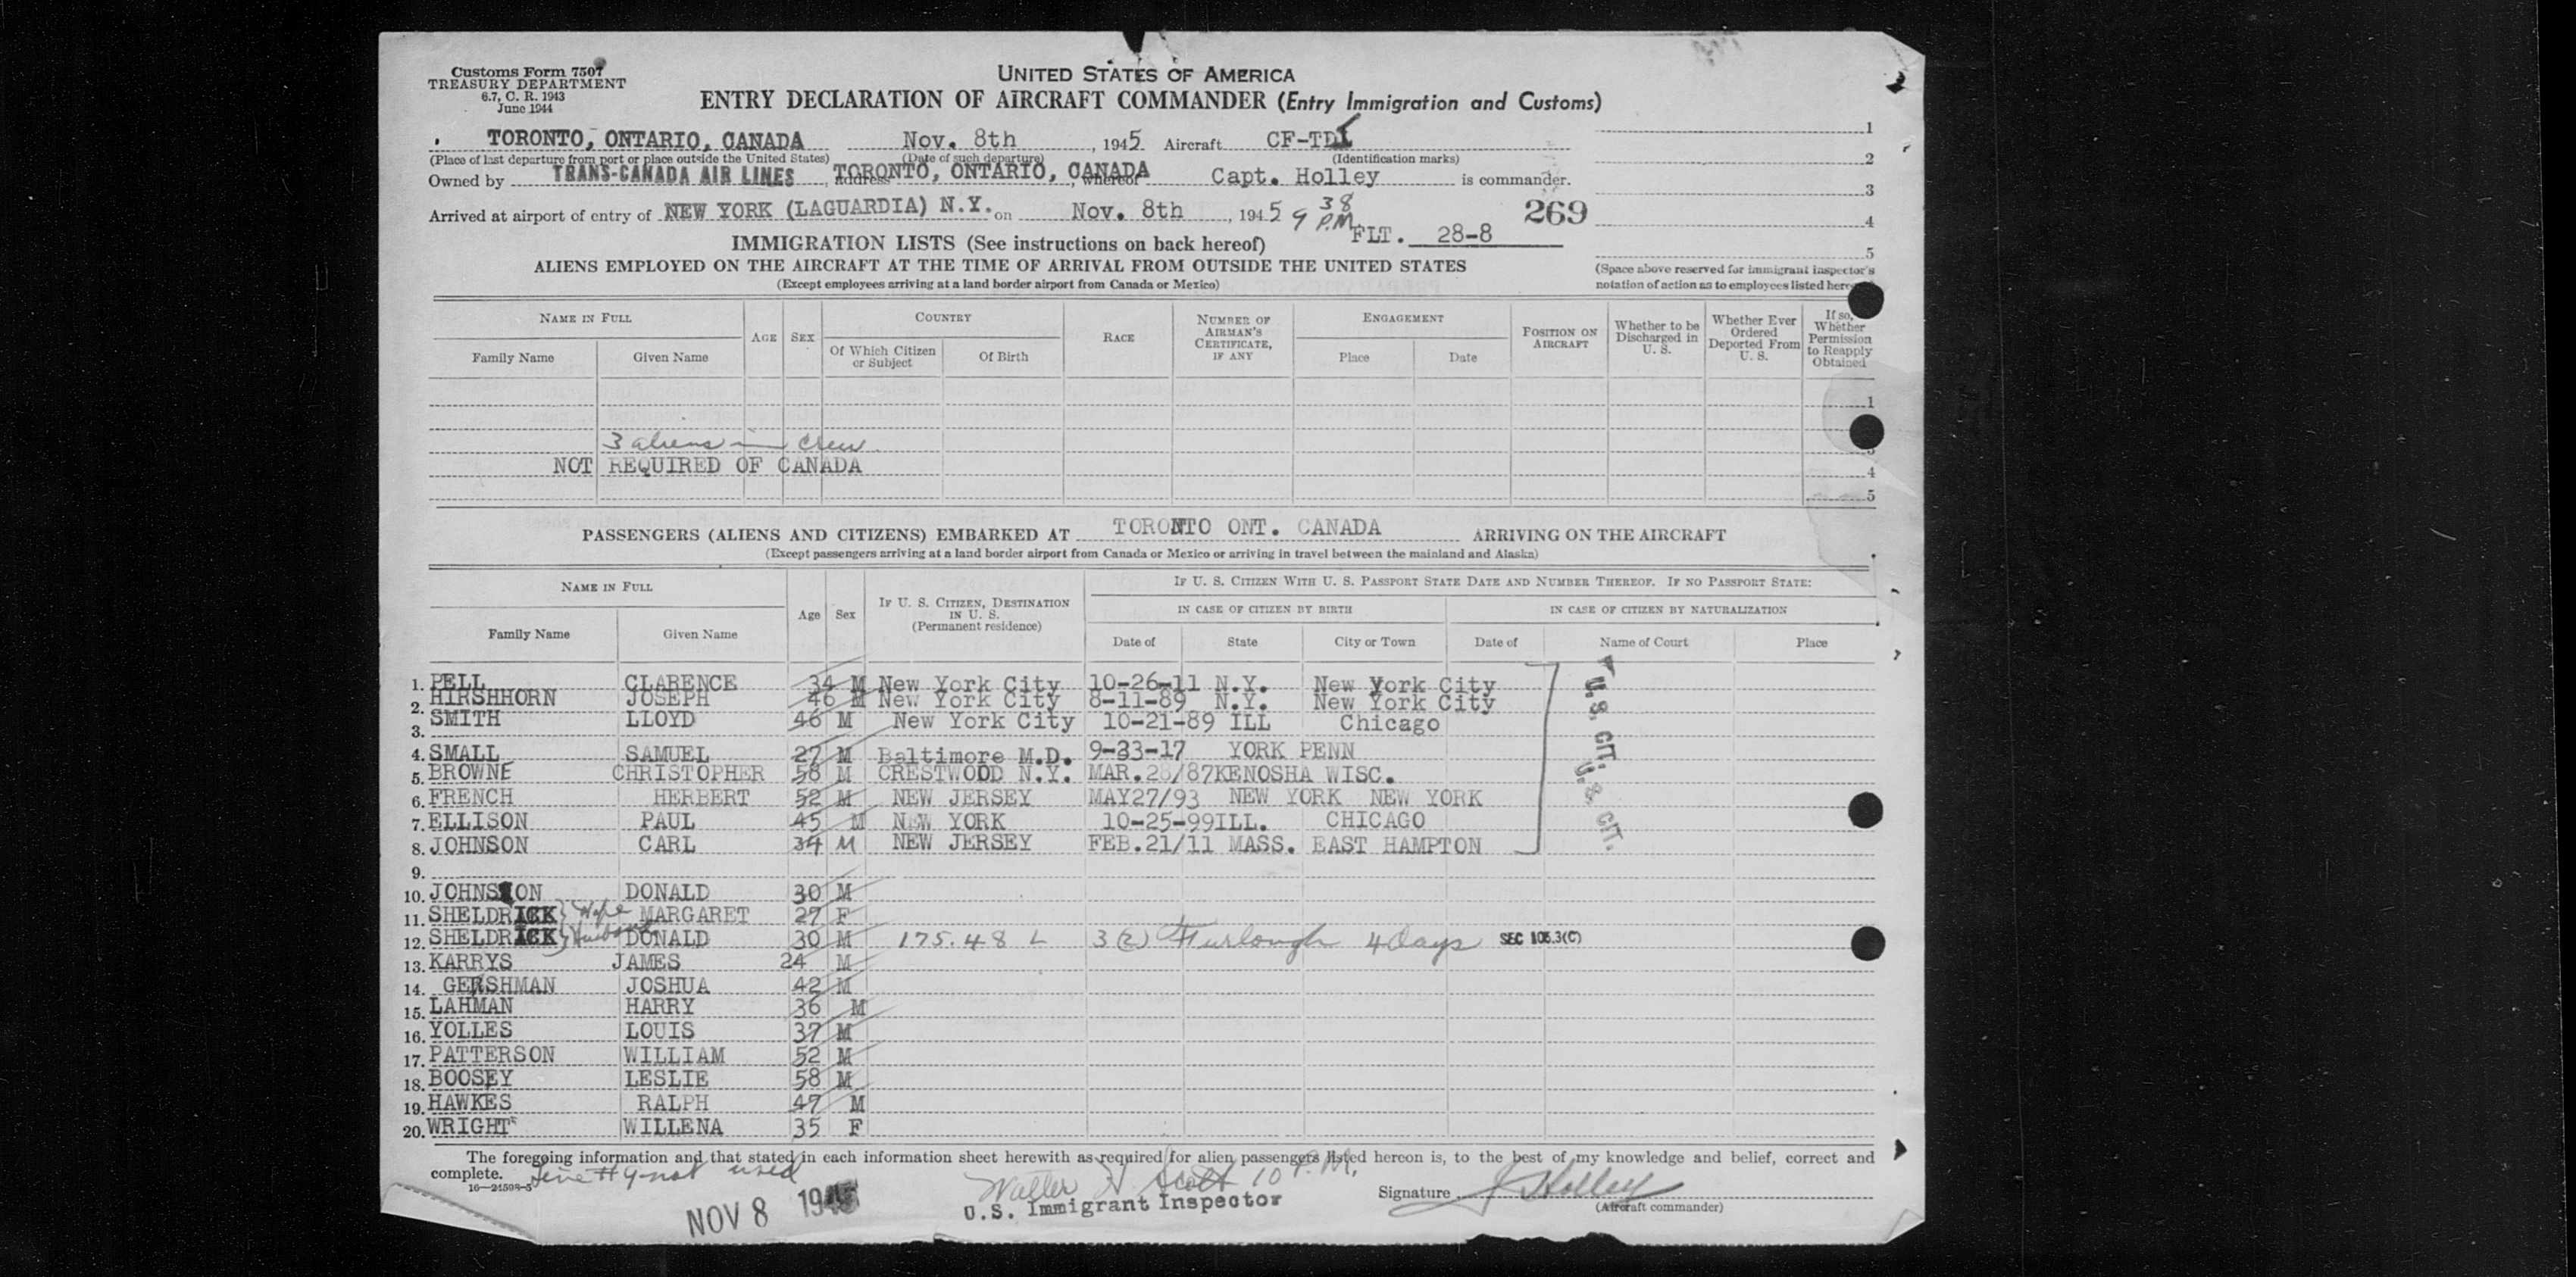 Customs Form 7507
TREASURY DEPARTMENT
6.7, C. R. 1943
June 1944
UNITED STATES OF AMERICA
ENTRY DECLARATION OF AIRCRAFT COMMANDER (Entry Immigration and Customs)
TORONTO, ONTARIO, CANADA Nov. 8th , 1945 Aircraft CF-TD
(Place of last departure from port or place outside the United States) (Date of such departure) (Identification marks)
Owned by TRANS-CANADA AIR LINES , address TORONTO, ONTARIO, CANADA , whereof Capt. Holley is commander.
Arrived at airport of entry of NEW YORK (LAGUARDIA) N.Y. on Nov. 8th , 1945 9 38 P.M. 269
FLT. 28-8
1
2
3
4
5
(Space above reserved for immigrant inspector's
notation of action as to employees listed
IMMIGRATION LISTS (See instructions on back hereof)
ALIENS EMPLOYED ON THE AIRCRAFT AT THE TIME OF ARRIVAL FROM OUTSIDE THE UNITED STATES
(Except employees arriving at a land border airport from Canada or Mexico)
NAME IN FULL AGE SEX COUNTRY RACE NUMBER OF AIRMAN'S CERTIFICATE, IF ANY ENGAGEMENT POSITION ON AIRCRAFT Whether to be Discharged in U. S. Whether Ever Ordered Deported From U. S. If so, Whether Permission to Reapply Obtained
Family Name Given Name Of Which Citizen or Subject Of Birth Place Date
1
3 aliens in crew
3
NOT REQUIRED OF CANADA 4
5
PASSENGERS (ALIENS AND CITIZENS) EMBARKED AT TORONTO ONT. CANADA ARRIVING ON THE AIRCRAFT
(Except passengers arriving at a land border airport from Canada or Mexico or arriving in travel between the mainland and Alaska)
NAME IN FULL Age Sex IF U. S. CITIZEN, DESTINATION IN U. S. (Permanent residence) IF U. S. CITIZEN WITH U. S. PASSPORT STATE DATE AND NUMBER THEREOF. IF NO PASSPORT STATE:
IN CASE OF CITIZEN BY BIRTH IN CASE OF CITIZEN BY NATURALIZATION
Family Name Given Name Date of State City or Town Date of Name of Court Place
1. PELL CLARENCE 34 M New York City 10-26-11 N.Y. New York City
2. HIRSHHORN JOSEPH 46 M New York City 8-11-89 N.Y. New York City
3. SMITH LLOYD 46 M New York City 10-21-89 ILL Chicago
4. SMALL SAMUEL 27 M Baltimore M.D. 9-23-17 YORK PENN
5. BROWNE CHRISTOPHER 58 M CRESTWOOD N.Y. MAR.28/87 KENOSHA WISC.
6. FRENCH HERBERT 52 M NEW JERSEY MAY27/93 NEW YORK NEW YORK
7. ELLISON PAUL 45 M NEW YORK 10-25-99 ILL. CHICAGO
8. JOHNSON CARL 34 M NEW JERSEY FEB.21/11 MASS. EAST HAMPTON
U.S. CIT.
U.S. CIT.
9.
10. JOHNSON DONALD 30 M
11. SHELDRICK Wife MARGARET 27 F
12. SHELDRICK Husband DONALD 30 M 175.48 L 3(2) Furlough 4 Days SEC 105.3(C)
13. KARRYS JAMES 24 M
14. GERSHMAN JOSHUA 42 M
15. LAHMAN HARRY 36 M
16. YOLLES LOUIS 37 M
17. PATTERSON WILLIAM 52 M
18. BOOSEY LESLIE 58 M
19. HAWKES RALPH 47 M
20. WRIGHT WILLENA 35 F
The foregoing information and that stated in each information sheet herewith as required for alien passengers listed hereon is, to the best of my knowledge and belief, correct and
complete. Line #9 not used
16—24598-5
NOV 8 1945
Walter H Scott 10 P.M.
U.S. Immigrant Inspector
Signature J Holley
(Aircraft commander)